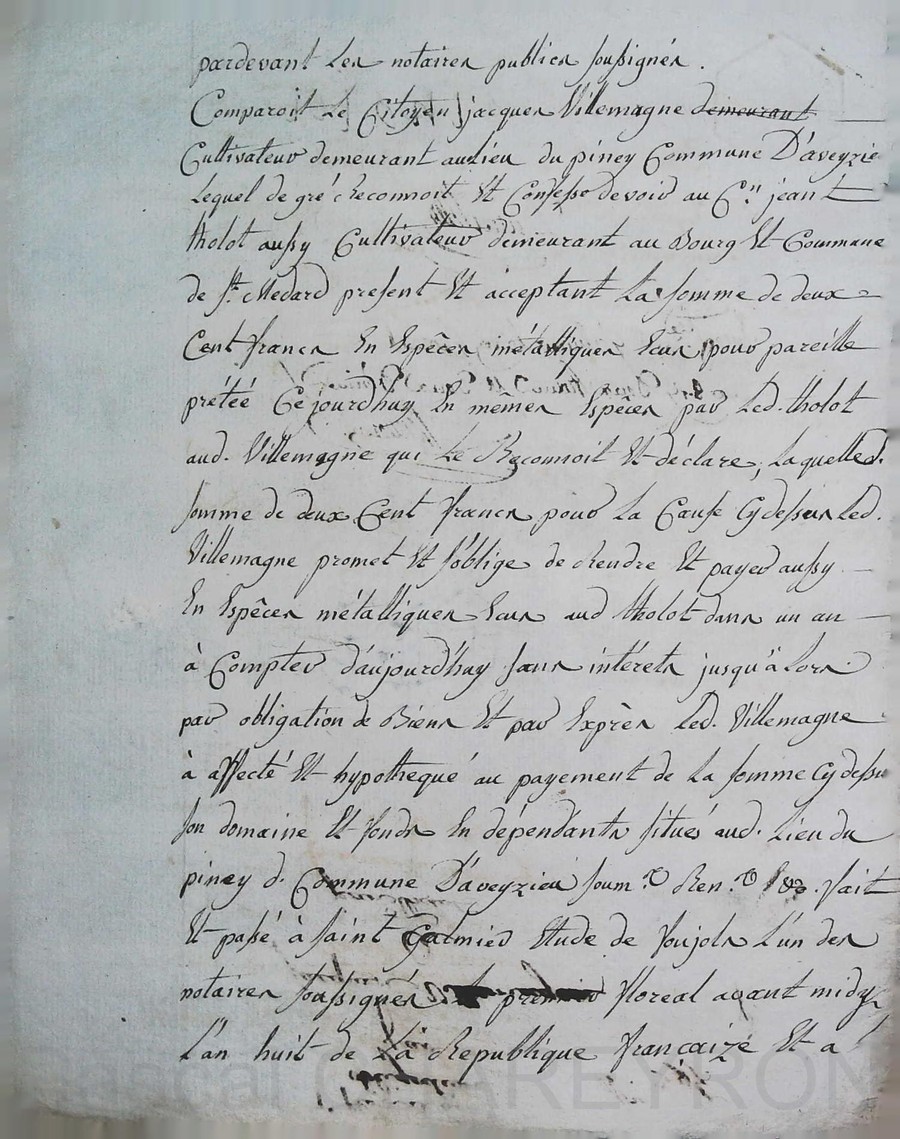 pardevant Les notaires publics soussignés.
Comparoit Le Citoyen jacques Villemagne demeurant
Cultivateur demeurant audieu du piney Commune D'aveyzie
Lequel de gré Reconnoit Et Confesse devoir au C.en jean
tholot aussy Cultivateur demeurant au Bourg Et Commune
de St. Medard present Et acceptant La somme de deux
Cent francs En Espêces métalliques Ecus pour pareille
prétéé Cejourdhuy En mêmes Espêces par Led. tholot
aud. Villemagne qui Le Reconnoit Et déclare, Laquelled.
somme de deux Cent francs pour La Cause Cydessus Led.
Villemagne promet Et s'oblige de Rendre Et payer aussy
En Espêces métalliques Ecus aud tholot dans un an
à Compter d'aujourd'huy sans intérets jusqu'a Lors
par obligation de Biens Et par Exprès Led. Villemagne
à affecté Et hypothequé au payement de La somme Cydessu
son domaine Et fonds En dépendants situés aud. Lieu du
piney d. Commune D'aveyzieu soum.on Ren.on &a. fait
Et passé à saint Galmier Etude de foujols L'un des
notaires soussignés premier floreal avant midy
L'an huit de La Republique françaizé Et a